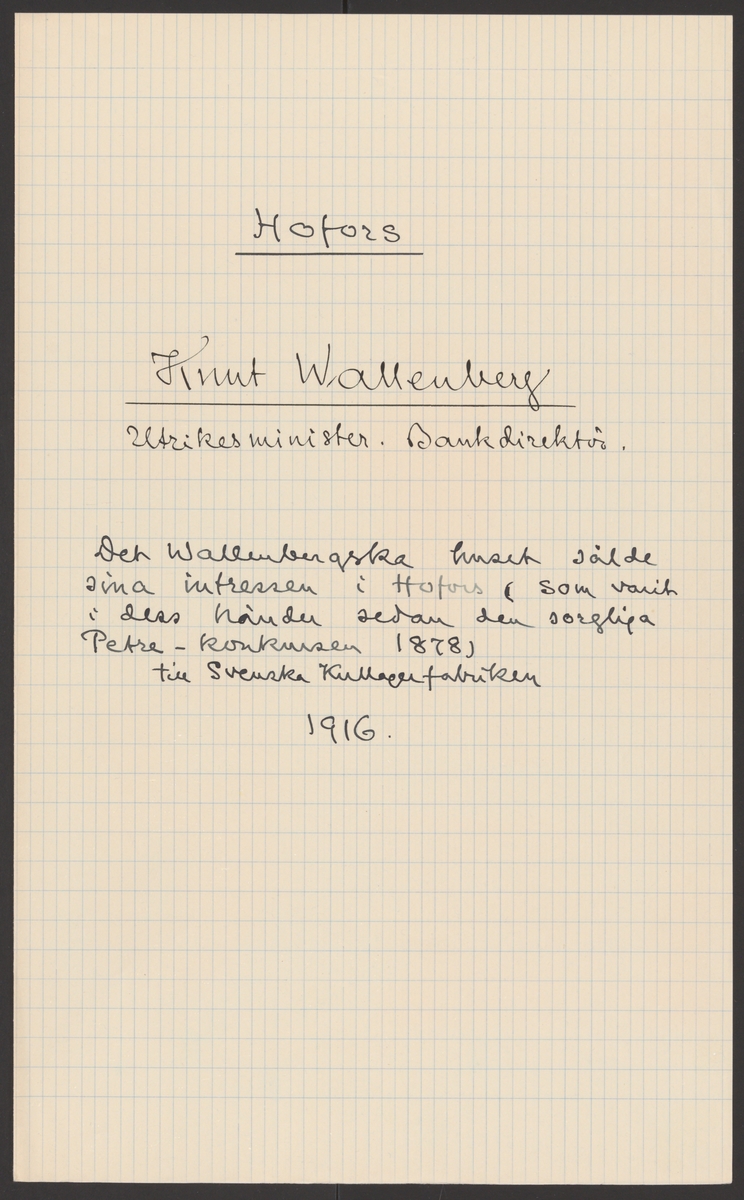 Hofors
Knut Wallenberg
Utrikesminister. Bankdirektör.
Det Wallenbergska huset sålde
sina intressen i Hofors ( som varit
i dess händer sedan den sorgliga
Petre - konkursen 1878)
till Svenska Kullagerfabriken
1916.